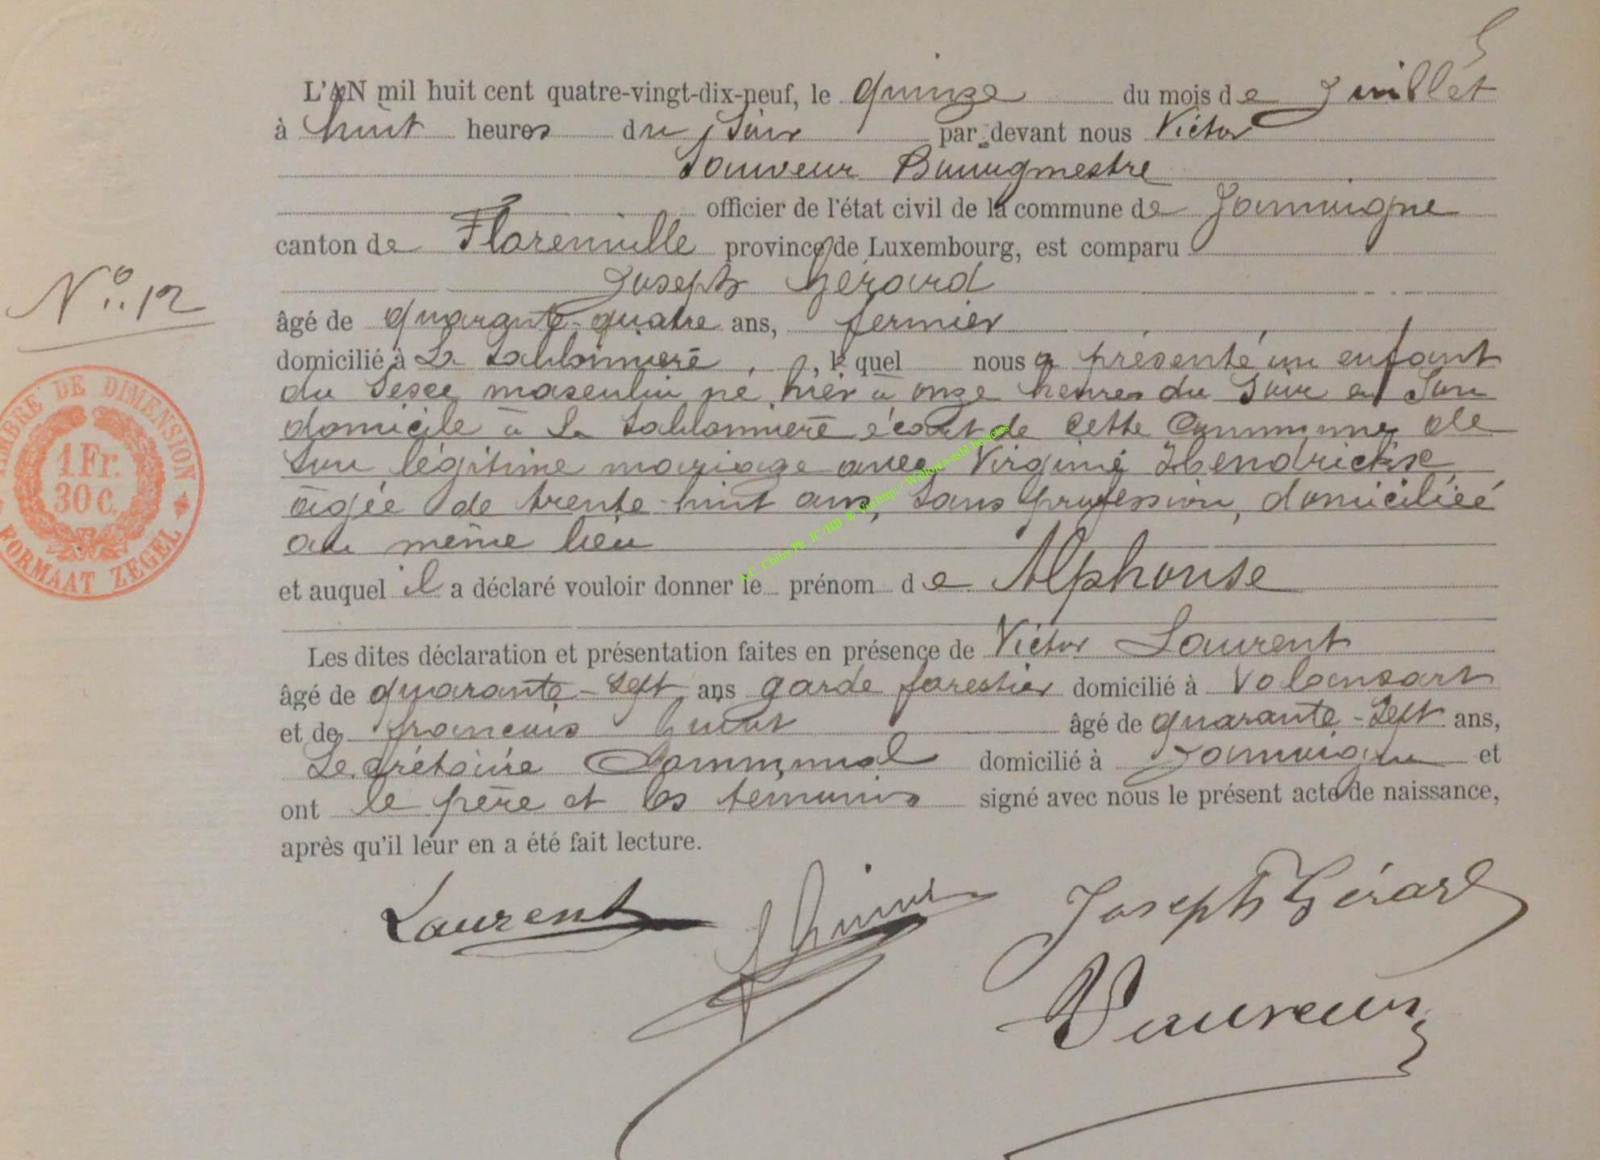 L'AN mil huit cent quatre-vingt-dix-neuf, le quinze du mois de Juillet
à huit heures du soir par devant nous Victor
Sauveur Bourgmestre
officier de l'état civil de la commune de Jamoigne
canton de Florenville province de Luxembourg, est comparu
Joseph Gérard
N° 12
âgé de quarante-quatre ans, fermier
domicilié à La Sablonnière, lequel nous a présenté un enfant
du sexe masculin né hier à onze heures du soir en son
domicile à La Sablonnière écart de cette commune, de
son légitime mariage avec Virginie Hendrickx
âgée de trente-huit ans, sans profession, domiciliée
au même lieu
et auquel il a déclaré vouloir donner le prénom de Alphonse
Les dites déclaration et présentation faites en présence de Victor Laurent
âgé de quarante-sept ans garde forestier domicilié à Valansart
et de françois âgé de quarante-sept ans,
Secrétaire Communal domicilié à Jamoigne et
ont le père et les témoins signé avec nous le présent acte de naissance,
après qu'il leur en a été fait lecture.
TIMBRE DE DIMENSION
1 Fr.
30 C.
FORMAAT ZEGEL
Laurent
Joseph Gérard
V Sauveur